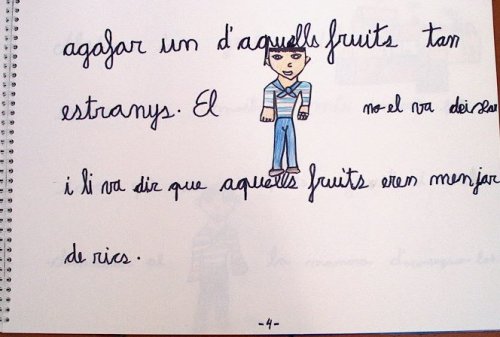 agafar un d'aquells fruits tan
estranys. El no el va deixar
i li va dir que aquells fruits eren menjar
de rics.
-4-